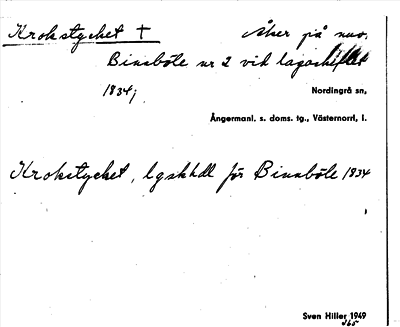 Krokstycket † Åker på nuv.
Binsböle nr 2 vid lagaskiftet
1834;
Nordingrå sn,
Ångermanl. s. doms. tg., Västernorrl. l.
Krokstycket, lgskhdl för Binsböle 1834
Sven Hiller 1949